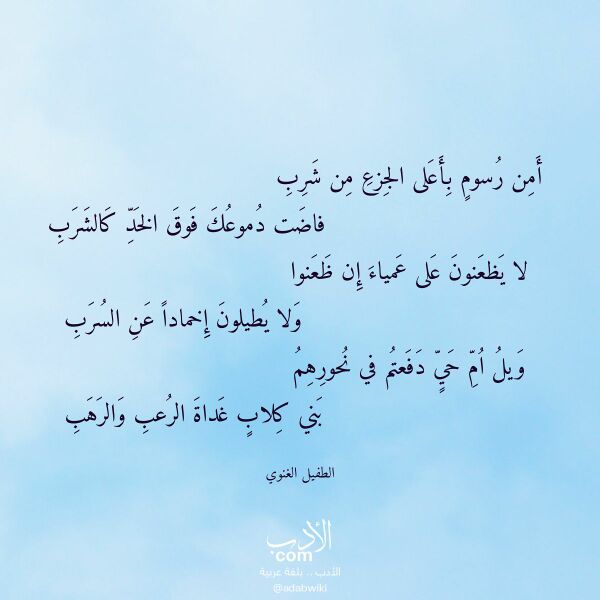 أَمِن رُسومٍ بِأَعَلى الجِزعِ مِن شَرِبِ
فاضَت دُموعُكَ فَوقَ الخَدِّ كَالشَرَبِ
لا يَظعَنونَ عَلى عَمياءَ إِن ظَعَنوا
وَلا يُطيلونَ إِخماداً عَنِ السُرَبِ
وَيلُ اُمِّ حَيٍّ دَفَعتُم في نُحورِهِمُ
بَني كِلابٍ غَداةَ الرُعبِ وَالرَهَبِ
الطفيل الغنوي
الأدب
com
الأدب .. بلغة عربية
@adabwiki